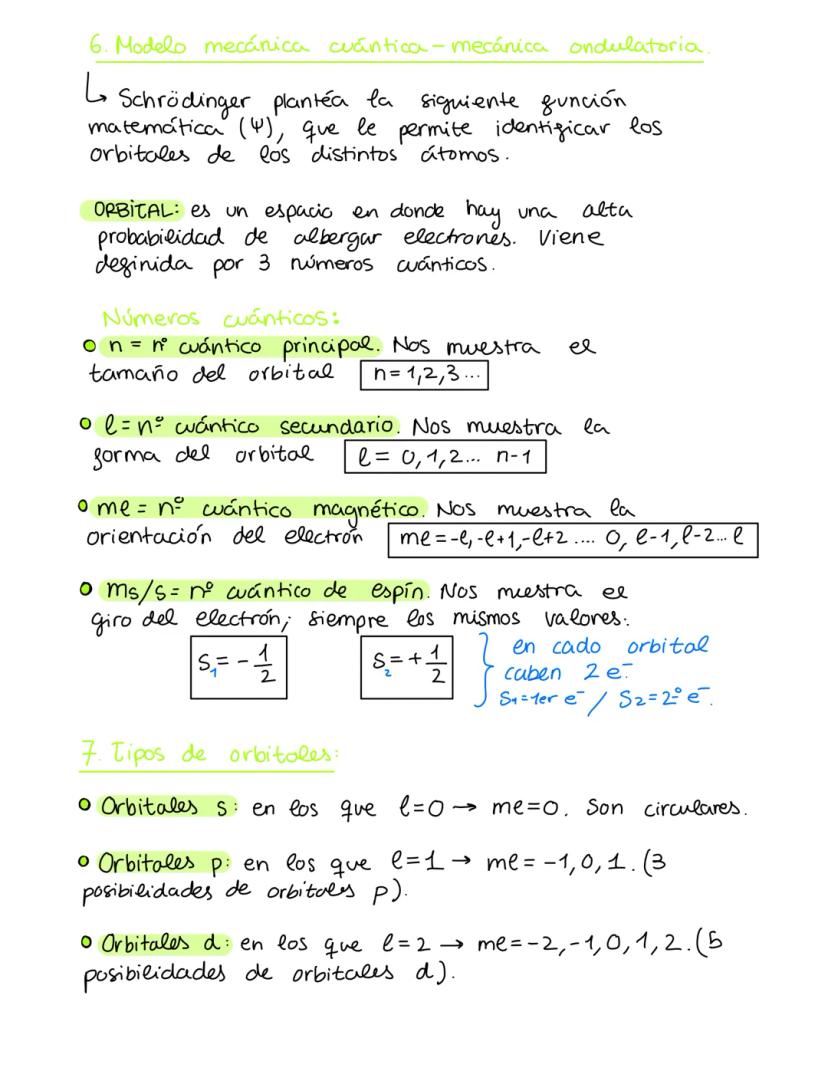 6. Modelo mecánica cuántica - mecánica ondulatoria.
↳ Schrödinger plantéa la siguiente función
matemática (Ψ), que le permite identificar los
orbitales de los distintos átomos.
ORBITAL: es un espacio en donde hay una alta
probabilidad de albergar electrones. Viene
definida por 3 números cuánticos.
Números cuánticos:
n = nº cuántico principal. Nos muestra el
tamaño del orbital n=1,2,3...
l = nº cuántico secundario. Nos muestra la
forma del orbital l= 0,1,2... n-1
ml = nº cuántico magnético. Nos muestra la
orientación del electrón ml=-l,-l+1,-l+2.... 0, l-1,l-2... l
ms/s= nº cuántico de espín. Nos muestra el
giro del electrón; siempre los mismos valores:
S₁= - 1/2 S₂= + 1/2 en cada orbital
caben 2 e⁻.
S₁=1er e⁻ / S₂=2º e⁻.
7. Tipos de orbitales:
Orbitales s: en los que l=0 → ml=0. Son circulares.
Orbitales p: en los que l=1 → ml= -1,0,1. (3
posibilidades de orbitales p).
Orbitales d: en los que l=2 → ml=-2,-1,0,1,2. (5
posibilidades de orbitales d).